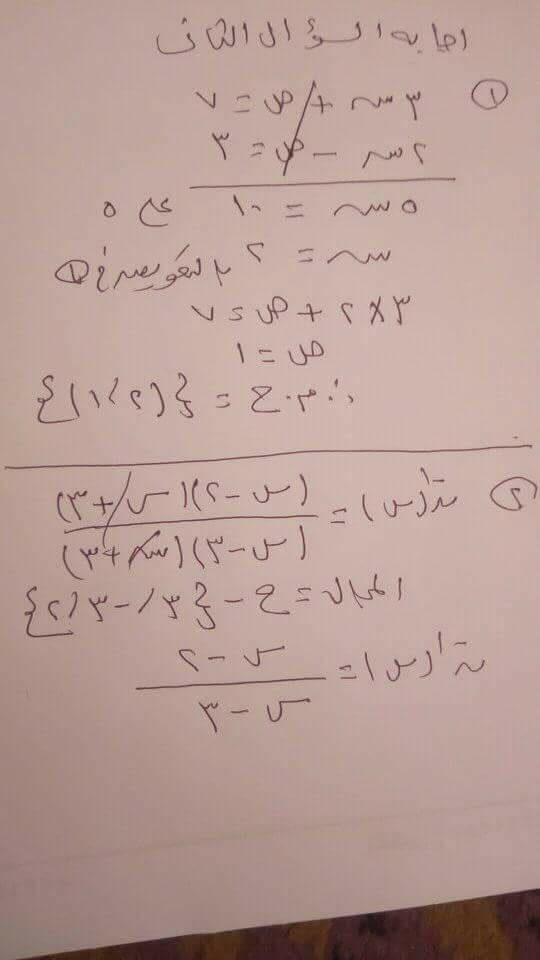 اجابه السؤال الثانى
① ٣س + ص = ٧
٢س − ص = ٣
٥س = ١٠ ع ٥
س = ٢ بالتعويض فى ①
٣ × ٢ + ص = ٧
ص = ١
∴ م.ح = {(٢، ١)}
② ن⁻¹(س) = (س − ٢)(س + ٣) / (س − ٣)(س + ٣)
المجال = ح − {٣، −٣، ٢}
ن⁻¹(س) = س − ٢ / س − ٣